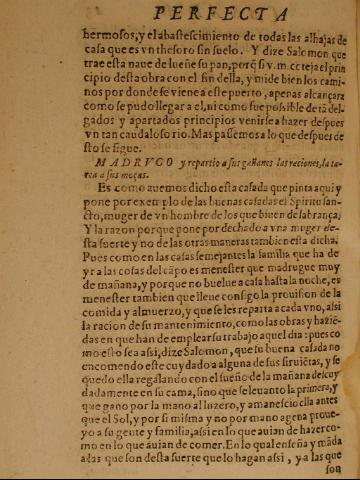 PERFECTA
hermosos, y el abastescimiento de todas las alhajas de
casa que es vn thesoro sin suelo. Y dize Salomon que
trae esta naue de lueñe su pan, porq̃ si v.m. coteja el prin
cipio desta obra con el fin della, y mide bien los cami-
nos por donde se viene a este puerto, apenas alcançara
como se pudo llegar a el, ni como fue possible de tã del-
gados y apartados principios venirse a hazer despues
vn tan caudaloso rio. Mas passemos a lo que despues de
sto se sigue.
MADRVGO y repartio a sus gañanes las raciones, la ta-
rea a sus moças.
Es como auemos dicho esta casada que pinta aqui y
pone por exemplo de las buenas casadas el Spiritu san-
cto, muger de vn hombre de los que biuen de labrança.
Y la razon porque pone por dechado a vna muger de-
sta suerte y no de las otras maneras tambien esta dicha.
Pues como en las casas semejantes la familia que ha de
yr a las cosas del cãpo es menester que madrugue muy
de mañana, y porque no buelue a casa hasta la noche, es
menester tambien que lleue consigo la prouision de la
comida y almuerzo, y que se les reparta a cada vno, assi
la racion de su mantenimiento, como las obras y haziẽ-
das en que han de emplear su trabajo aquel dia: pues co
mo esto sea assi, dize Salomon, que su buena casada no
encomendo este cuydado a alguna de sus siruiẽtas, y se
quedo ella regalando con el sueño de la mañana descuy
dadamente en su cama, sino que se leuanto la primera, y
que gano por la mano al luzero, y amanescio ella antes
que el Sol, y por si misma y no por mano agena proue-
yo a su gente y familia, assi en lo que auian de hazer co-
mo en lo que auian de comer. En lo qual enseña y mãda
a las que son desta suerte que lo hagan assi, y a las que
son